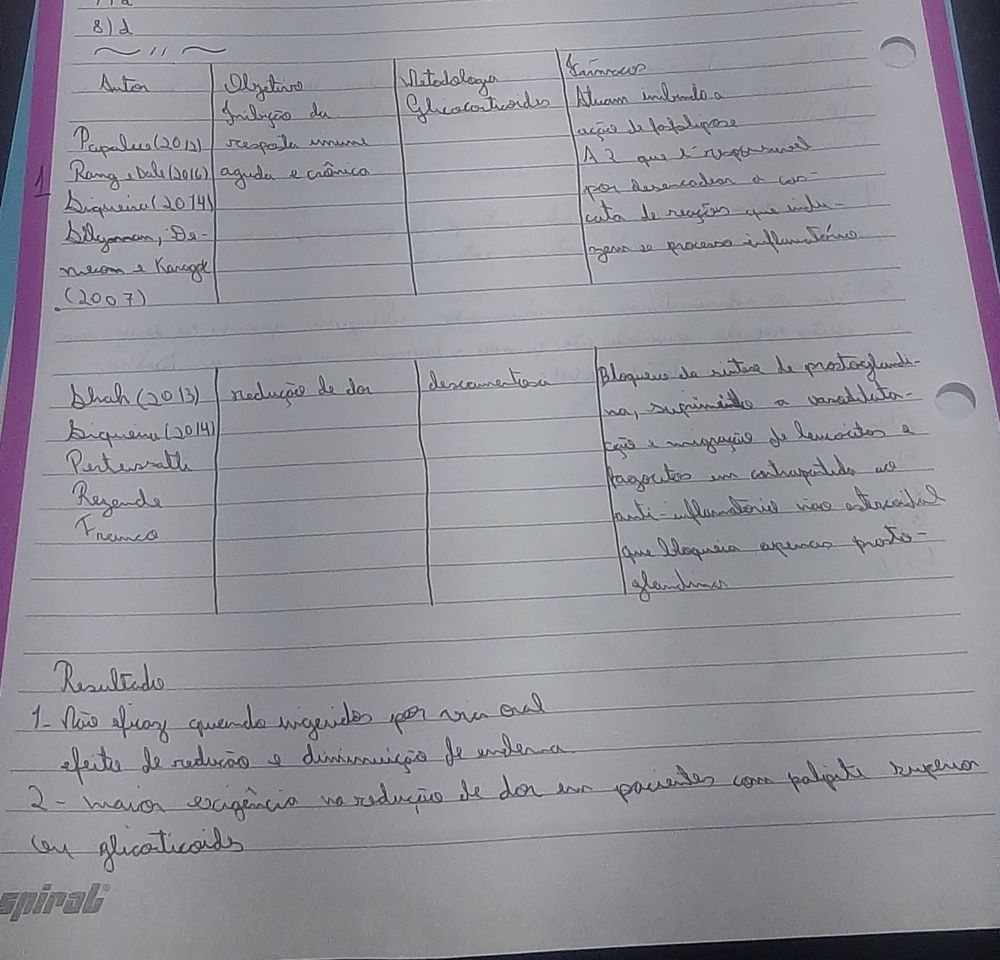 8) d
Autor Objetivo Metodologia Fármacos
Inibição da Glicocorticoides Atuam inibindo a
(2012) resposta imune ação de fosfolipase
Rang e Dale (2016) aguda e crônica A2 que é responsável
1 Siqueira (2014) por desencadear a cas-
cata de reações que indu-
zem se processo inflamatório
e
(2007)
Shah (2013) redução de dor Bloqueio da síntese de prostaglandi-
Siqueira (2014) na, suprimindo a vasodilata-
ção e migração de leucócitos e
Rezende fagocitos em contrapartida ao
Franco anti-inflamatório não esteroidal
que bloqueia apenas prosta-
glandinas
Resultado
1- Não eficaz quando ingeridos por via oral
efeito de redução e diminuição de endema
2- maior exigência na redução de dor em pacientes com superior
glicoticoids
spiral